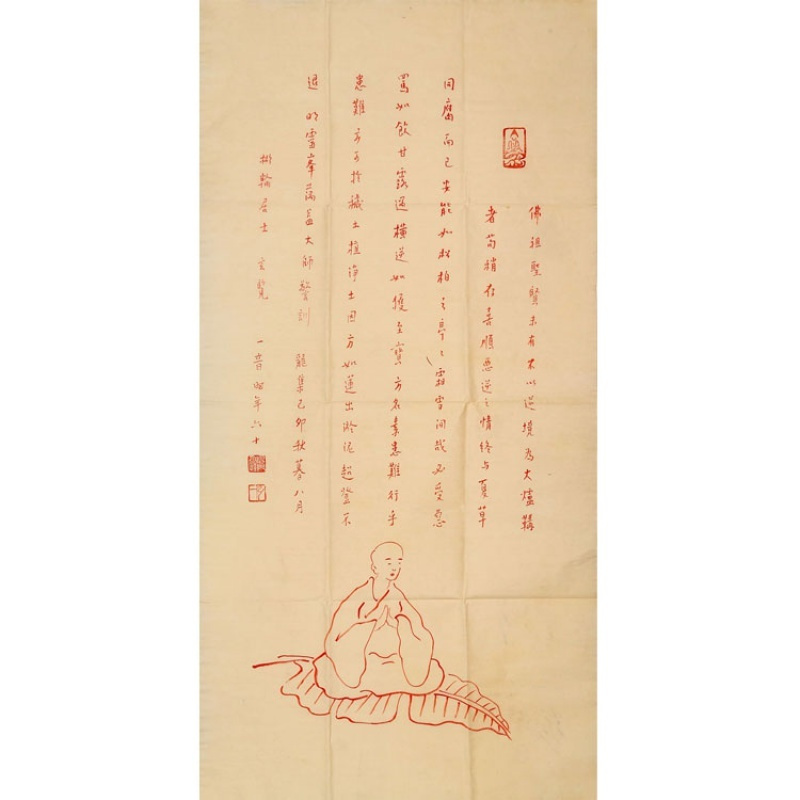 佛祖聖賢未有不以逆境為大爐鞴
者苟稍存喜順惡逆之情終与夏草
同腐而已安能如松柏之亭〻霜雪間哉必受惡
罵如飲甘露遇橫逆如獲至寶方名素患難行乎
患難方可於穢土植淨土因方如蓮出淤泥超登不
退 明靈峯蕅益大師警訓 龍集己卯秋暮八月
輪居士 玄覽 一音时年六十